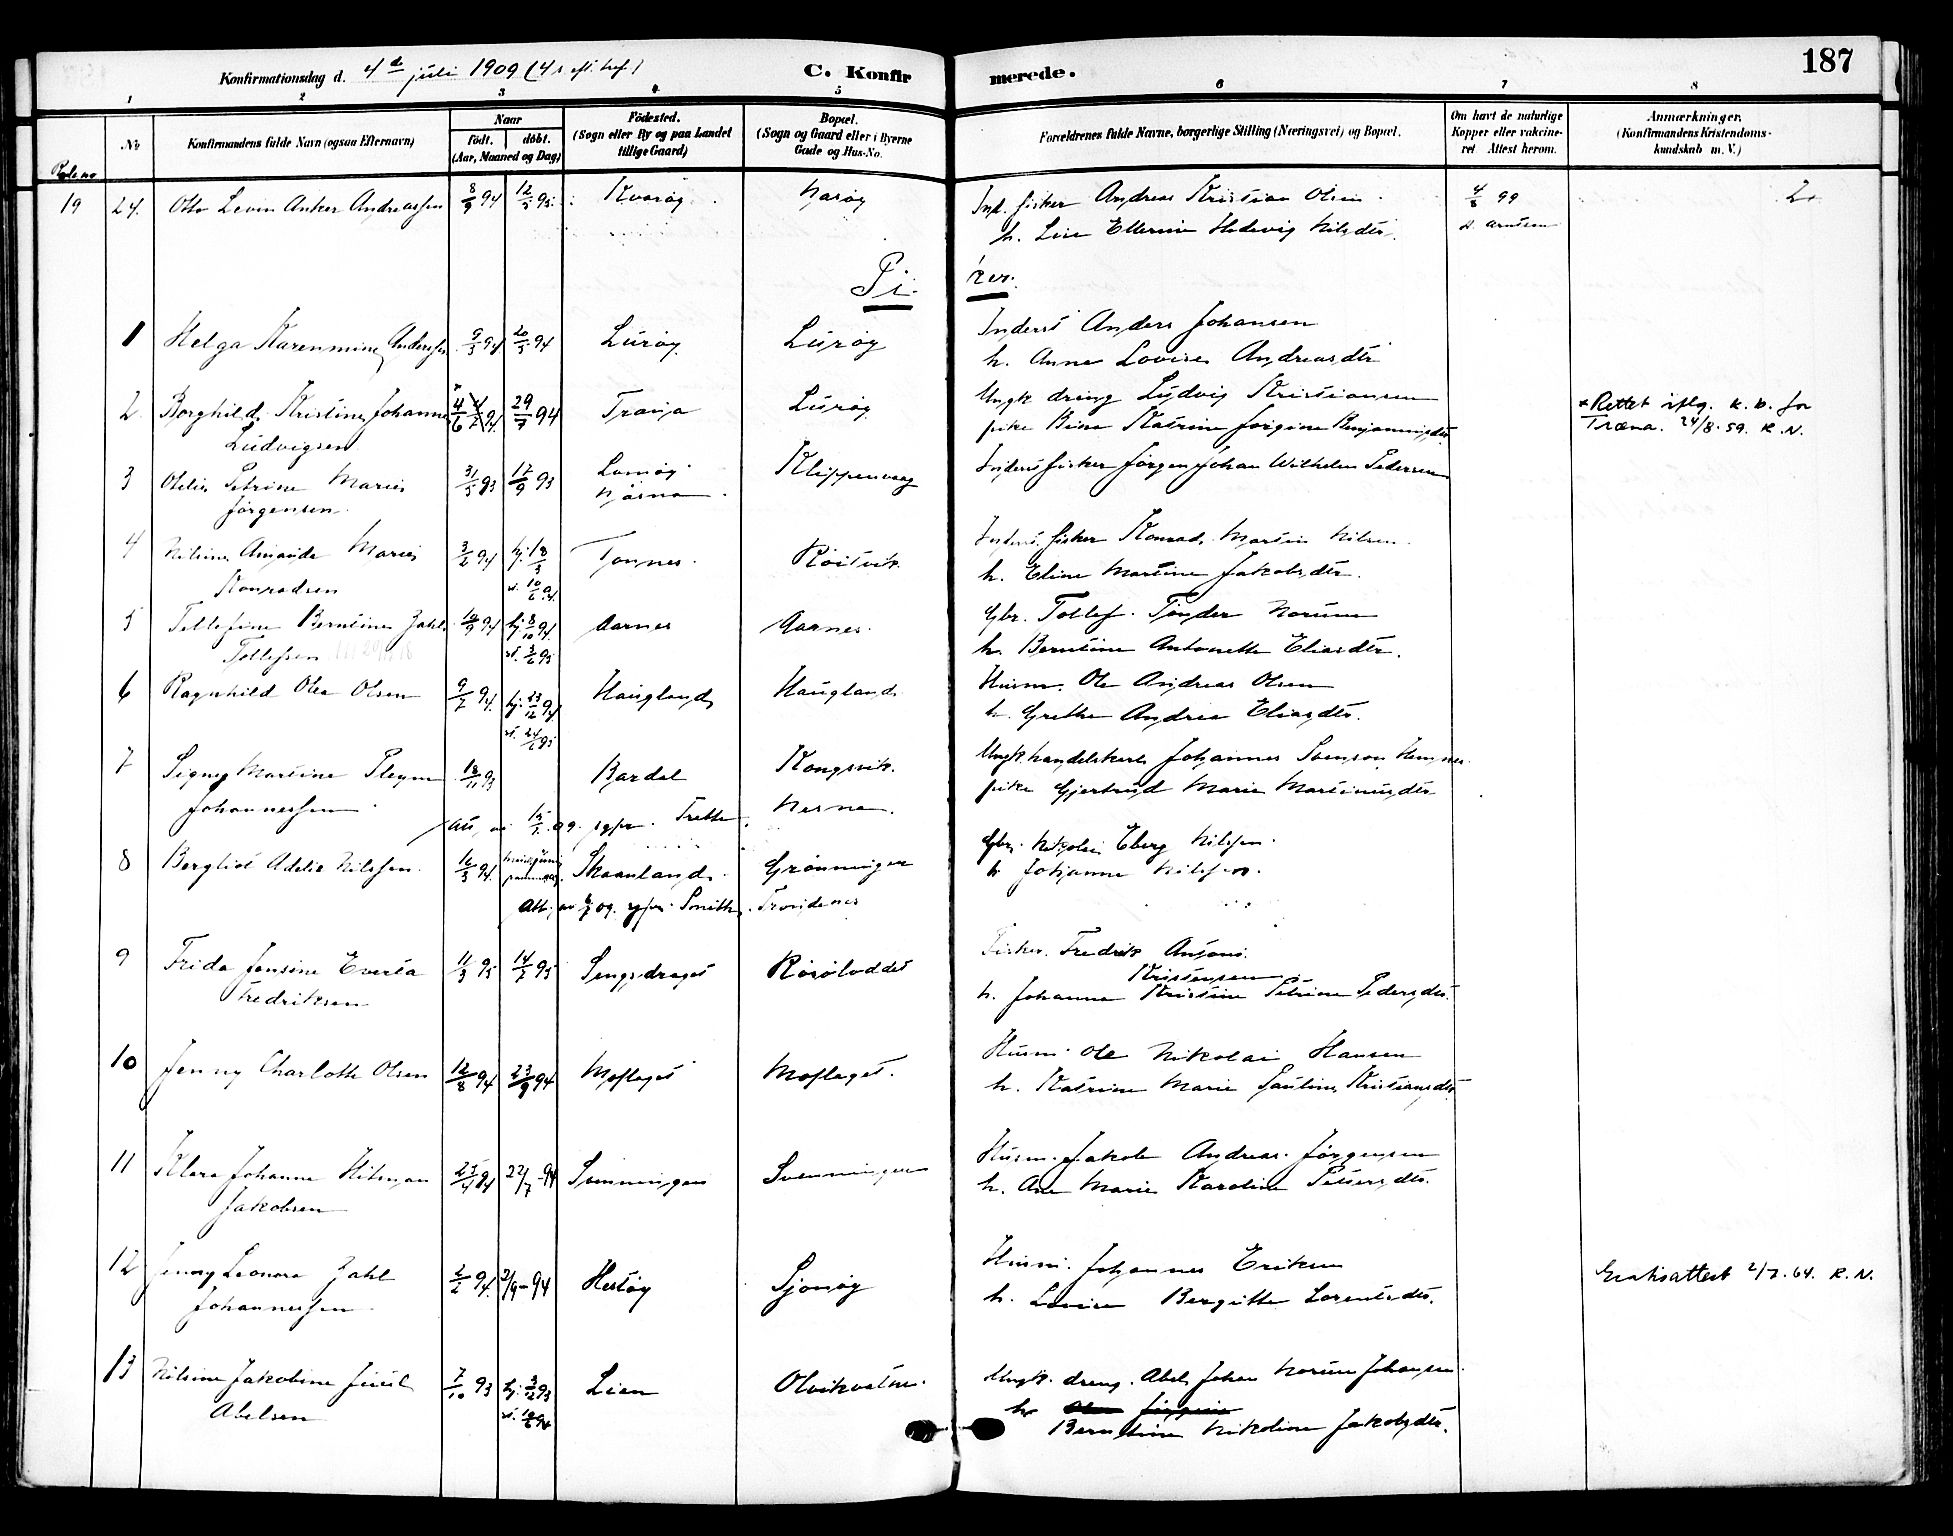 187
Konfirmationsdag d. 4de juli 1909 (4 s. eft. tref.) C. Konfir merede.
1 2 3 4 5 6 7 8
No
Konfirmandens fulde Navn (ogsaa Efternavn)
Naar
født. døbt.
(Aar, Maaned og Dag)
Fødested.
(Sogn eller By og paa Landet
tillige Gaard)
Bopæl.
(Sogn og Gaard eller i Byerne
Gade og Hus-No.
Forældrenes fulde Navne, borgerlige Stilling (Næringsvei) og Bopæl.
Om havt de naturlige
Kopper eller vakcine-
ret Attest herom.
Anmærkninger.
(Konfirmandens Kristendoms-
kundskab m. V.)
19 24. Otto Levin Anker Andreassen 8/9 94 12/5 95 Kvarøy Narøy Ind. fisker Andreas Kristian Olsen 4/8 99 2.
h. Lise Ellerine Hedevig Nilsdtr. d. Arntsen
Pi ker.
1 Helga Karenmine Anderssen 9/3 94 20/5 94 Lurøy Lurøy Inderst Anders Johansen
h. Anna Lovise Andreasdtr
2 Borghild Kristine Johanne 4/6 94 29/7 94 Træna Lurøy Ungk. dreng Ludvig Kristiansen *Rettet iflg. k.b. for
Ludvigsen pike Katrine Jørgine Benjaminsdtr Træna. 24/8.59. R.N.
3 Otelie Petrine Marie 31/5 93 17/9 93 Lamøy Klippenvaag Inderst fisker Jørgen Johan Wilhelm Pedersen
Jørgensen Nesna
4 Nilsine Amanda Marie 3/2 94 hj. 18/3 Tonnes Røitvik Inderst. fisker Konrad Martin Nilsen
Konradsen st. 10/6 94 h. Eline Martine Jakobsdtr.
5 Tellefine Berntine Zahl 10/9 94 hj. 8/10 94 Aarnes Aarnes. Gbr. Tollef Tønder Norum
Tollefsen st. 3/6 95 h. Berntine Antonette Eliasdtr.
6 Ragnhild Olea Olsen 9/7 94 hj. 23/12 94 Haugland Haugland Husm. Ole Andreas Olsen
st. 24/6 95 h. Grethe Andrea Eliasdtr.
7 Signy Martine Pleym 18/11 93 Bardal Kongsvik. Ungk. handelskarl Johannes Svenson Hemnes
Johannessen Nesna. pike Gjertrud Marie Martinusdtr
Att. av 15/7.09. sgpr. Trette.
8 Bergliot Adelie Nilssen 16/3 94 Skaanland Grønningen Gbr. Nikolai Eberg Nilssen
h Johanna Nilssen.
Att. av 09. sgpr. Smith. Trondenes
9 Frida Jensine Everta 11/3 95 14/7 95 Sengsdraget Røsøloddet Fisker Fredrik Antoni
Fredriksen Kristensen
h. Johanna Kristine Petrine Pedersdtr.
10 Jenny Charlotte Olsen 12/8 94 23/9 94 Moflaget Moflaget. Husm. Ole Nikolai Hansen
h. Katrine Marie Pauline Kristiansdtr
11 Klara Johanne Hitman 25/4 94 22/7-94 Svenningen Svenningen Husm. Jakob Andreas Jørgensen
Jakobsen h. Ane Marie Karoline Petersdtr.
12 Jenny Leonora Zahl 2/2 94. 2/9-94 Hestøy Sjonøy Husm. Johannes Eriksen Gratisattest 2/7.64. R.N.
Johannessen h. Lovise Bergitte Lorentsdtr.
13 Nilsine Jakobine Juul 7/10 93 hj. 3/12 93 Lien Olvikvatne Ungk. dreng. Abel Johan Norum Johansen
Abelsen st. 10/6 94 h.
Berntine Nikoline Jakobsdtr.